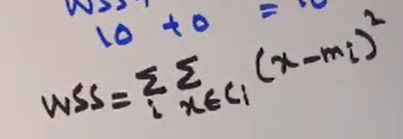 WSS
10 + 0 = 10
WSS = Σ_i Σ_{x∈C_i} (x - m_i)²